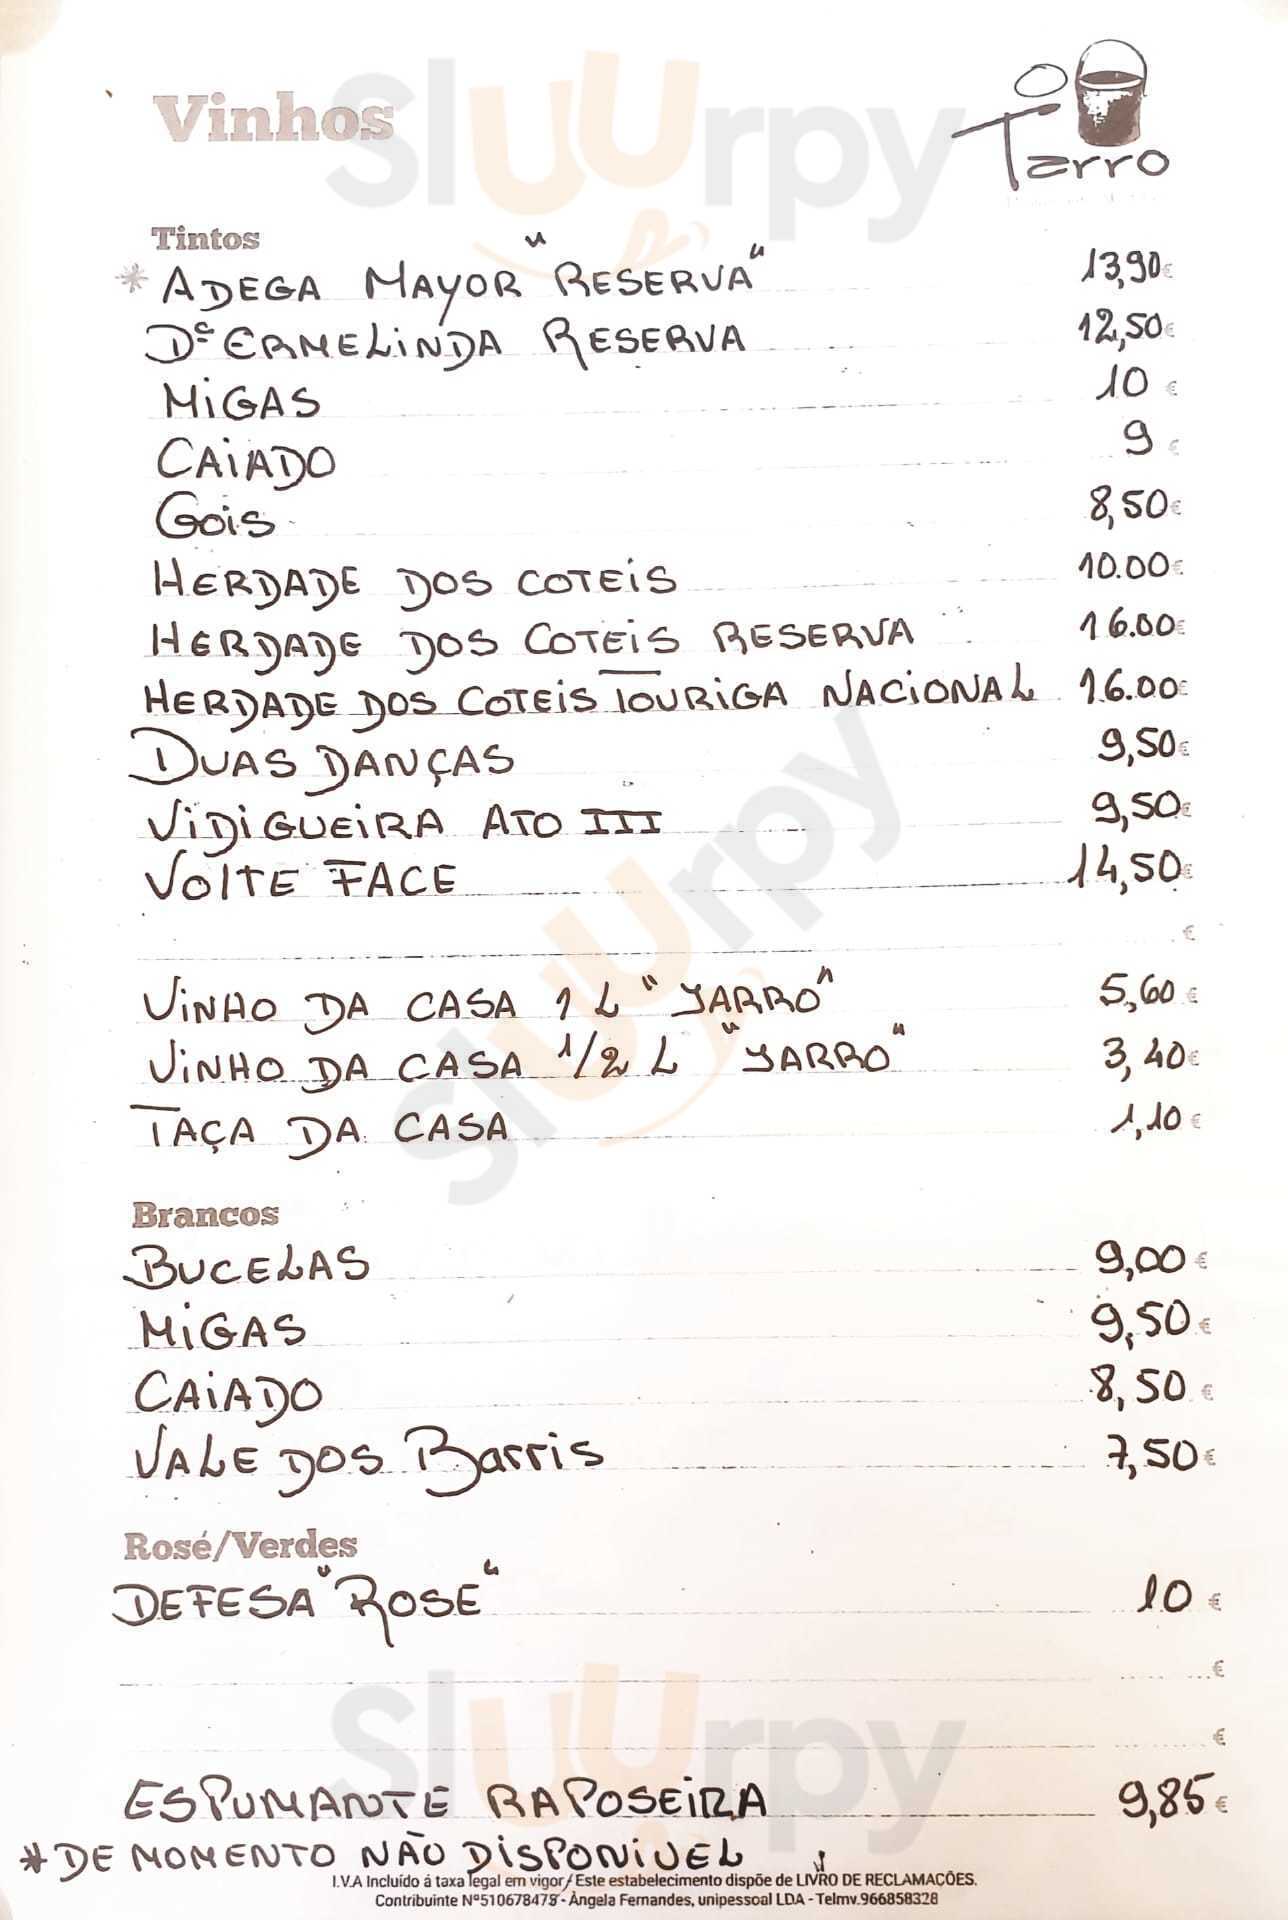 Vinhos
O Tarro
Tintos
* ADEGA MAYOR "RESERVA" 13,90€
Dª ERMELINDA RESERVA 12,50€
MiGAS 10 €
CAiADO 9 €
Gois 8,50€
HERDADE DOS COTEiS 10.00€
HERDADE DOS COTEiS RESERVA 16.00€
HERDADE DOS COTEiS TOURiGA NACiONAL 16.00€
DUAS DANÇAS 9,50€
ViDiGUEiRA ATO III 9,50€
VOLTE FACE 14,50€
€
ViNHO DA CASA 1 L "JARRO" 5,60 €
ViNHO DA CASA 1/2 L "JARRO" 3,40€
TAÇA DA CASA 1,10 €
Brancos
BUCELAS 9,00 €
MiGAS 9,50 €
CAiADO 8,50 €
VALE DOS Barris 7,50€
Rosé/Verdes
DEFESA "ROSE" 10 €
€
€
ESPUMANTE RAPOSEiRA 9,85€
* DE MOMENTO NÃO DiSPONiVEL
I.V.A Incluído á taxa legal em vigor / Este estabelecimento dispõe de LIVRO DE RECLAMAÇÕES.
Contribuinte Nº510678478 - Àngela Fernandes, unipessoal LDA - Telmv.966858328
Sluurpy
Sluurpy
Sluurpy